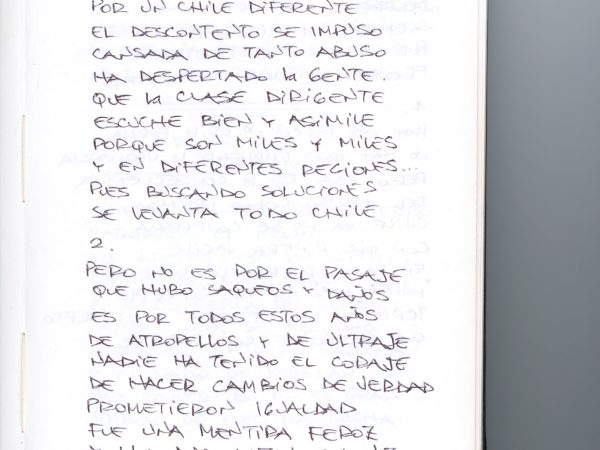 POR UN CHILE DIFERENTE
EL DESCONTENTO SE IMPUSO
CANSADA DE TANTO ABUSO
HA DESPERTADO la GENTE.
QUE la CLASE DIRIGENTE
ESCUCHE BIEN Y ASIMILE
PORQUE SON MILES Y MILES
Y EN DIFERENTES REGIONES...
PUES BUSCANDO SOLUCIONES
SE LEVANTA TODO CHILE
2.
PERO NO ES POR EL PASAJE
QUE HUBO SAQUEOS Y DAÑOS
ES POR TODOS ESTOS AÑOS
DE ATROPELLOS Y DE ULTRAJE
NADIE HA TENIDO EL CORAJE
DE HACER CAMBIOS DE VERDAD
PROMETIERON IGUALDAD
FUE UNA MENTIRA FEROZ